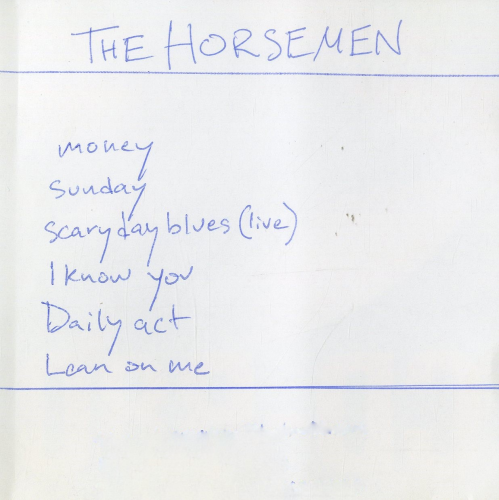 THE HORSEMEN
money
sunday
scary day blues (live)
I know you
Daily act
Lean on me